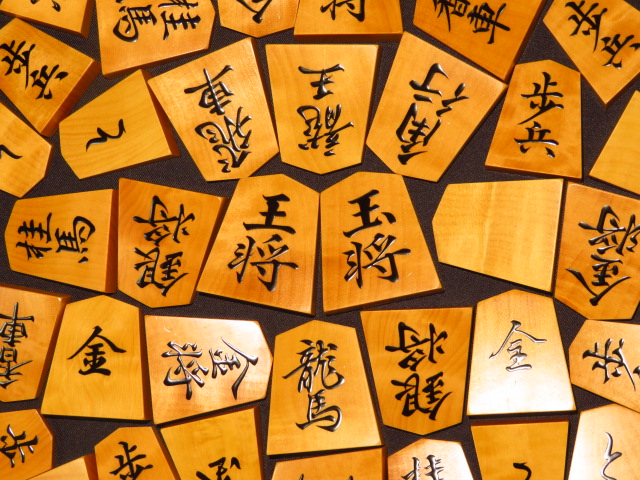 桂馬
香車
歩兵
歩兵
飛車
龍王
角行
歩兵
と
桂馬
銀将
王将
玉将
金将
香車
金
金将
龍馬
銀将
全
歩
歩
歩